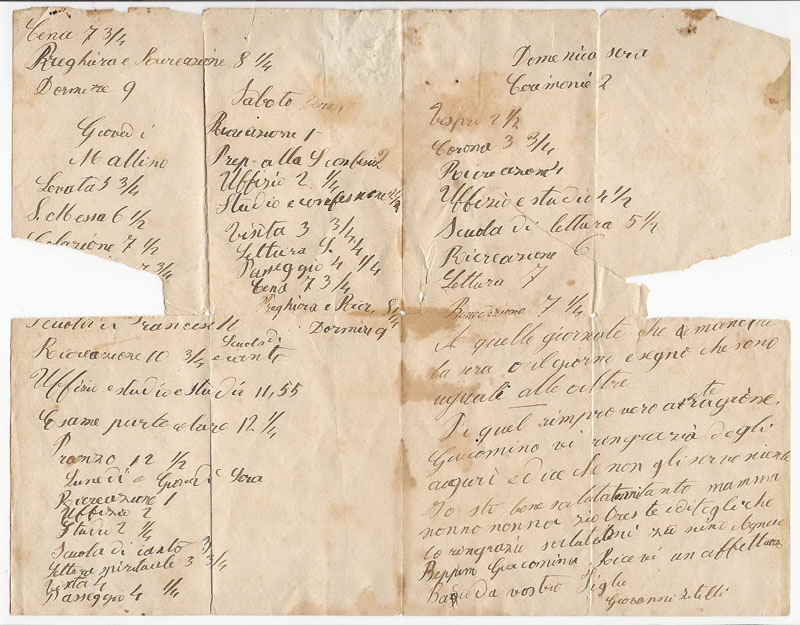 Cena 7 3/4
Preghiera e Ricreazione 8 1/4
Dormire 9
Giovedì
Mattino
Levata 5 3/4
S. Messa 6 1/2
Colazione 7 1/2
3/4
Scuola di Francese 11
Ricreazione 10 3/4
Scuola di
e canto
Uffizio e studio e studio 11,55
Esame particolare 12 1/4
Pranzo 12 1/2
Lunedì e Giovedì Sera
Ricreazione 1
Uffizio 2
Studio 2 1/4
Scuola di canto 3
Lettura spirituale 3 3/4
Visita 4
Passeggio 4 1/4
Sabato
Ricreazione 1
Prep. alla S. 2
Uffizio 2 1/4
Studio e confessione 2 1/2
Visita 3 3/4
Lettura S. 3/4
Passeggio 4 1/4
Cena 7 3/4
Preghiera e Ricr. 8 1/4
Dormire 9
Domenica sera
Cerimonie 2
Vespri 2 1/2
Corona 3 3/4
Ricreazione 4
Uffizio e studio 4 1/2
Scuola di lettura 5 1/2
Ricreazione 6
Lettura 7
Ricreazione 7 1/4
A quelle giornate che
la sera o il giorno e segno che sono
uguali alle altre
Di quel sempre vero
Giacomino vi ringrazia degli
auguri e dice che non gli serve niente
Io sto bene salutatemi tanto mamma
nonno nonna zio e ditegli che
lo ringrazio salutatemi zia Agnese
Peppino Giacomina Ricevi un affettuoso
bacio da vostro Figlio
Giovanni